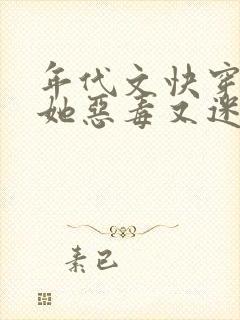 年代文快穿
她惡毒又迷
素已